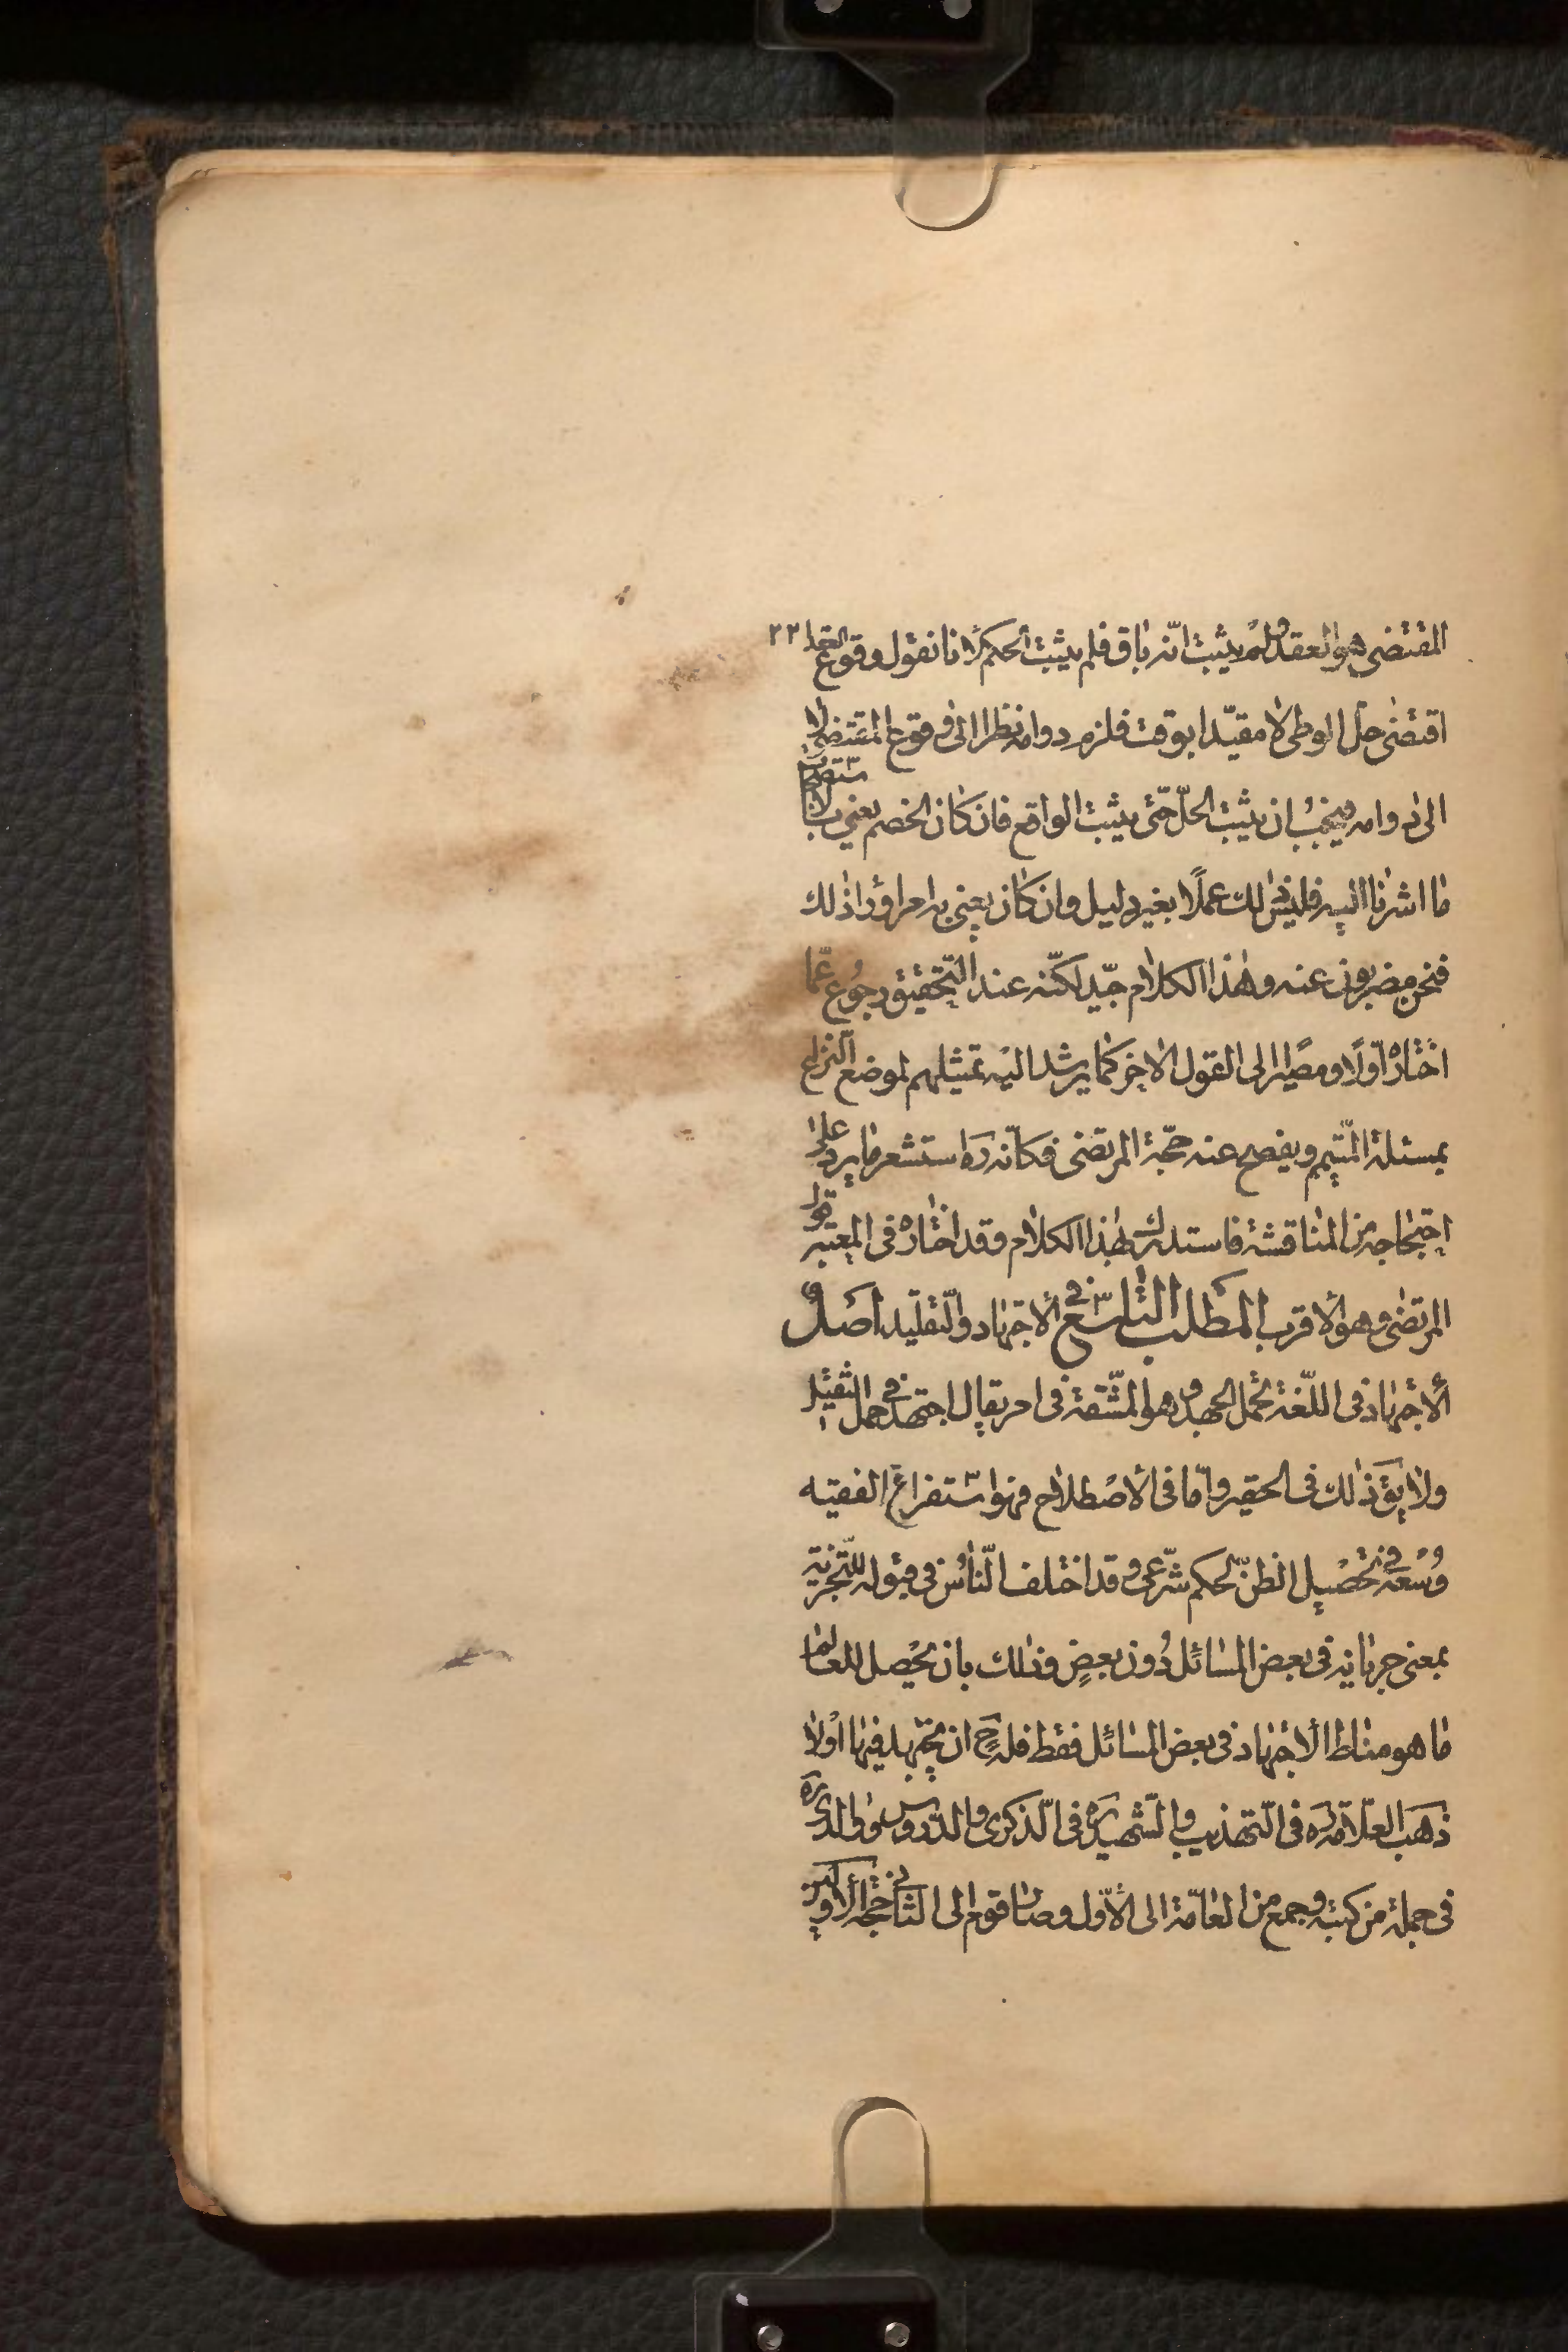 المقتضى هو العقد ولم يثبت انّه باق فلم يثبت الحكم لانا نقول وقوع العقد ٢٣
اقتضى حل الوطى لا مقيّدا بوقت فلزم دوامه نظرا الى وقوع المقتضى لا
الى دوامه فيجب ان يثبت الحلّ حتّى يثبت الواقع فان كان الخصم يعنى بالاستصحاب
ما اشرنا اليه فليس ذلك عملًا بغير دليل وان كان يعنى به امرا وراء ذلك
فنحن مضربون عنه وهذا الكلام جيّد لكنّه عند التّحقيق رجوع عمّا
اختاره اوّلا ومصير الى القول الاخر كما يرشد اليه تمثيلهم لموضع النزاع
بمسئلة المتيمم ويفصح عنه حجّة المرتضى فكانّه ره استشعر ما يرد على
احتجاجه من المناقشة فاستدرك بهذا الكلام وقد اختاره فى المعتبر قول
المرتضى وهو الاقرب المطلب التاسع فى الاجتهاد والتّقليد اصل
الاجتهاد فى اللّغة تحمل الجهد وهو المشّقة فى امر يقال اجتهد فى حمل الثقيل
ولا يق ذلك فى الحقير وامّا فى الاصطلاح فهو استفراغ الفقيه
وسعه فى تحصيل الظنّ بحكم شّرعى وقد اختلف النّاس فى قبوله للتّجزية
بمعنى جريانه فى بعض المسائل دون بعضٍ وذلك بان يحصل للعالم
ما هو مناط الاجتهاد فى بعض المسائل فقط فله ح ان يجتهد فيها اولا
ذهب العلّامة ره فى التّهذيب والشّهيد ره فى الذّكرى والدّروس ووالدى ره
فى جملة من كتبه وجمع من العامّة الى الاوّل وصار قوم الى الثانى حجّة الاولين